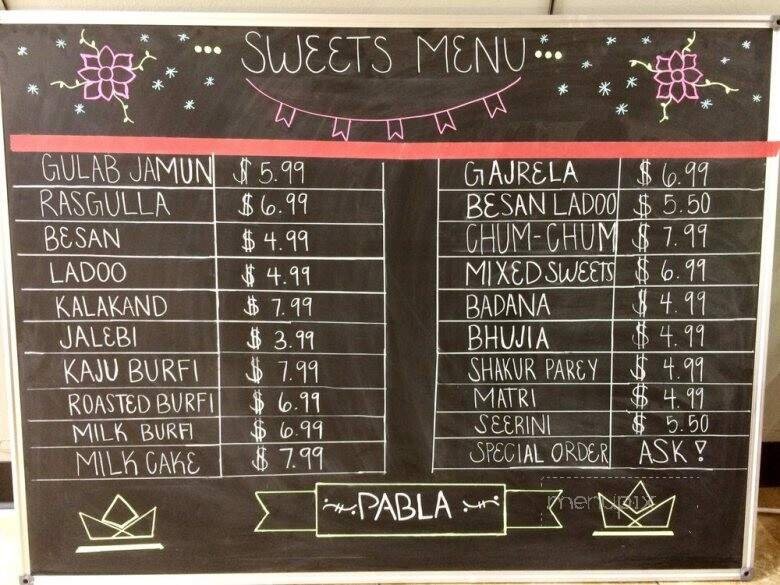 SWEETS MENU
GULAB JAMUN $ 5.99
RASGULLA $ 6.99
BESAN $ 4.99
LADOO $ 4.99
KALAKAND $ 7.99
JALEBI $ 3.99
KAJU BURFI $ 7.99
ROASTED BURFI $ 6.99
MILK BURFI $ 6.99
MILK CAKE $ 7.99
GAJRELA $ 6.99
BESAN LADOO $ 5.50
CHUM-CHUM $ 7.99
MIXED SWEETS $ 6.99
BADANA $ 4.99
BHUJIA $ 4.99
SHAKUR PAREY $ 4.99
MATRI $ 4.99
SEERINI $ 5.50
SPECIAL ORDER ASK!
PABLA
menupix